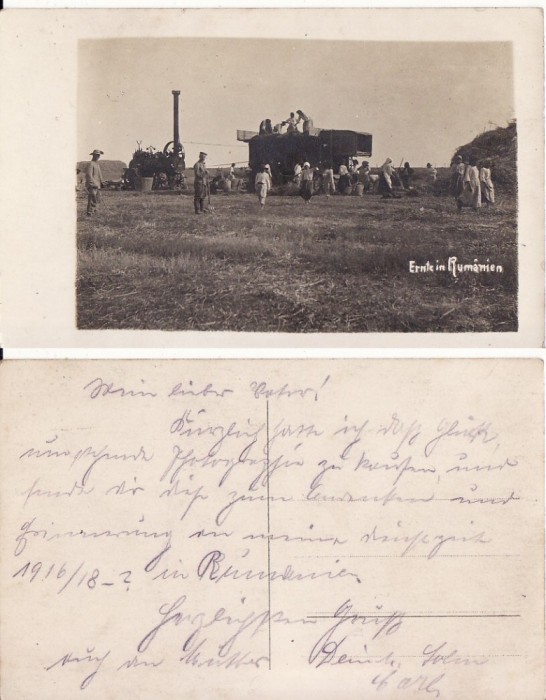 Ernte in Rumänien
Mein lieber Vater!
Kürzlich hatte ich das Glück,
umstehende Photographie zu kaufen, und
sende dir diese zum Andenken und
Erinnerung an meine Dienstzeit
1916/18-? in Rumänien.
Herzlichsten Gruß
auch an Mutter Dein Sohn
Carl